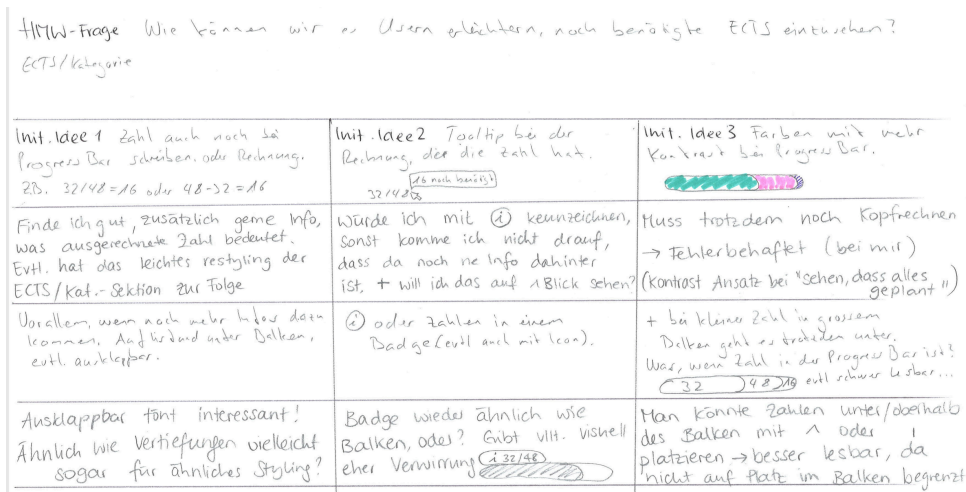 HMW-Frage Wie können wir es Usern erleichtern, noch benötigte ECTS einzusehen?
ECTS/Kategorie
Init. Idee 1 Zahl auch noch bei
Progress Bar schreiben. oder Rechnung.
ZB. 32/48=16 oder 48-32=16
Init. Idee 2 Tooltip bei der
Rechnung, die die Zahl hat.
16 noch benötigt
32/48
Init. Idee 3 Farben mit mehr
Kontrast bei Progress Bar.
Finde ich gut, zusätzlich gerne Info,
was ausgerechnete Zahl bedeutet.
Evtl. hat das leichtes restyling der
ECTS/Kat.-Sektion zur Folge
Würde ich mit i kennzeichnen,
sonst komme ich nicht drauf,
dass da noch ne Info dahinter
ist, + will ich das auf 1 Blick sehen?
Muss trotzdem noch Kopfrechnen
→ Fehlerbehaftet (bei mir)
(Kontrast Ansatz bei "sehen, dass alles
geplant")
Vorallem, wenn noch mehr Infos dazu
kommen. Auflistung unter Balken,
evtl. ausklappbar.
i oder Zahlen in einem
Badge (evtl auch mit Icon).
+ bei kleiner Zahl in grossem
Balken geht es trotzdem unter.
Was, wenn Zahl in der Progress Bar ist?
32 48 16 evtl schwer lesbar...
Ausklappbar tönt interessant!
Ähnlich wie Vertiefungen vielleicht
sogar für ähnliches Styling?
Badge wieder ähnlich wie
Balken, oder? Gibt vllt. visuell
eher Verwirrung i 32/48
Man könnte Zahlen unter/oberhalb
des Balken mit ^ oder |
platzieren → besser lesbar, da
nicht auf Platz im Balken begrenzt